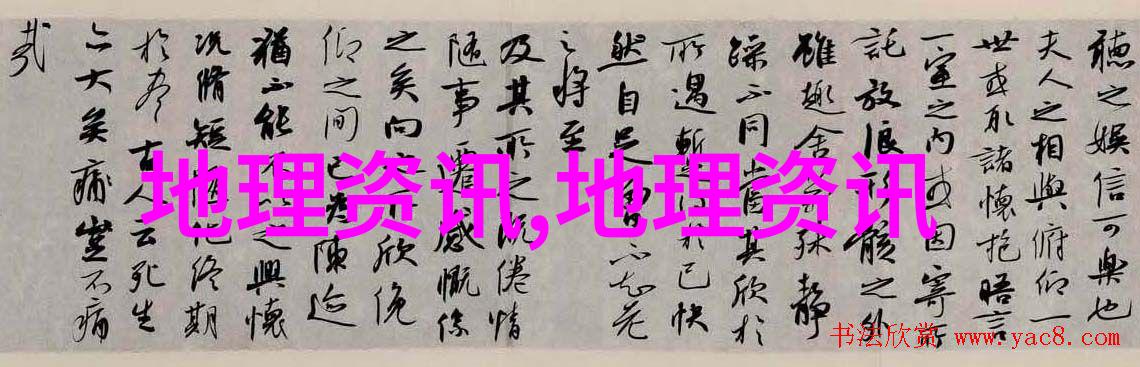 聽之娛信可樂也
夫人之相與俯仰一
世或取諸懷抱晤言
一室之内或因寄所
託放浪形骸之外
雖趣舍殊靜
躁不同當其欣於
所遇暫得於己快
然自足曾不知老
之將至
及其所之既倦情
隨事遷感慨係
之矣向之所欣俛
仰之間已為陳迹
猶不能不以之興懷
況脩短隨化終期
於盡古人云死生
亦大矣痛豈不痛
哉
地理资讯,地理资讯
书法欣赏 www.yac8.com